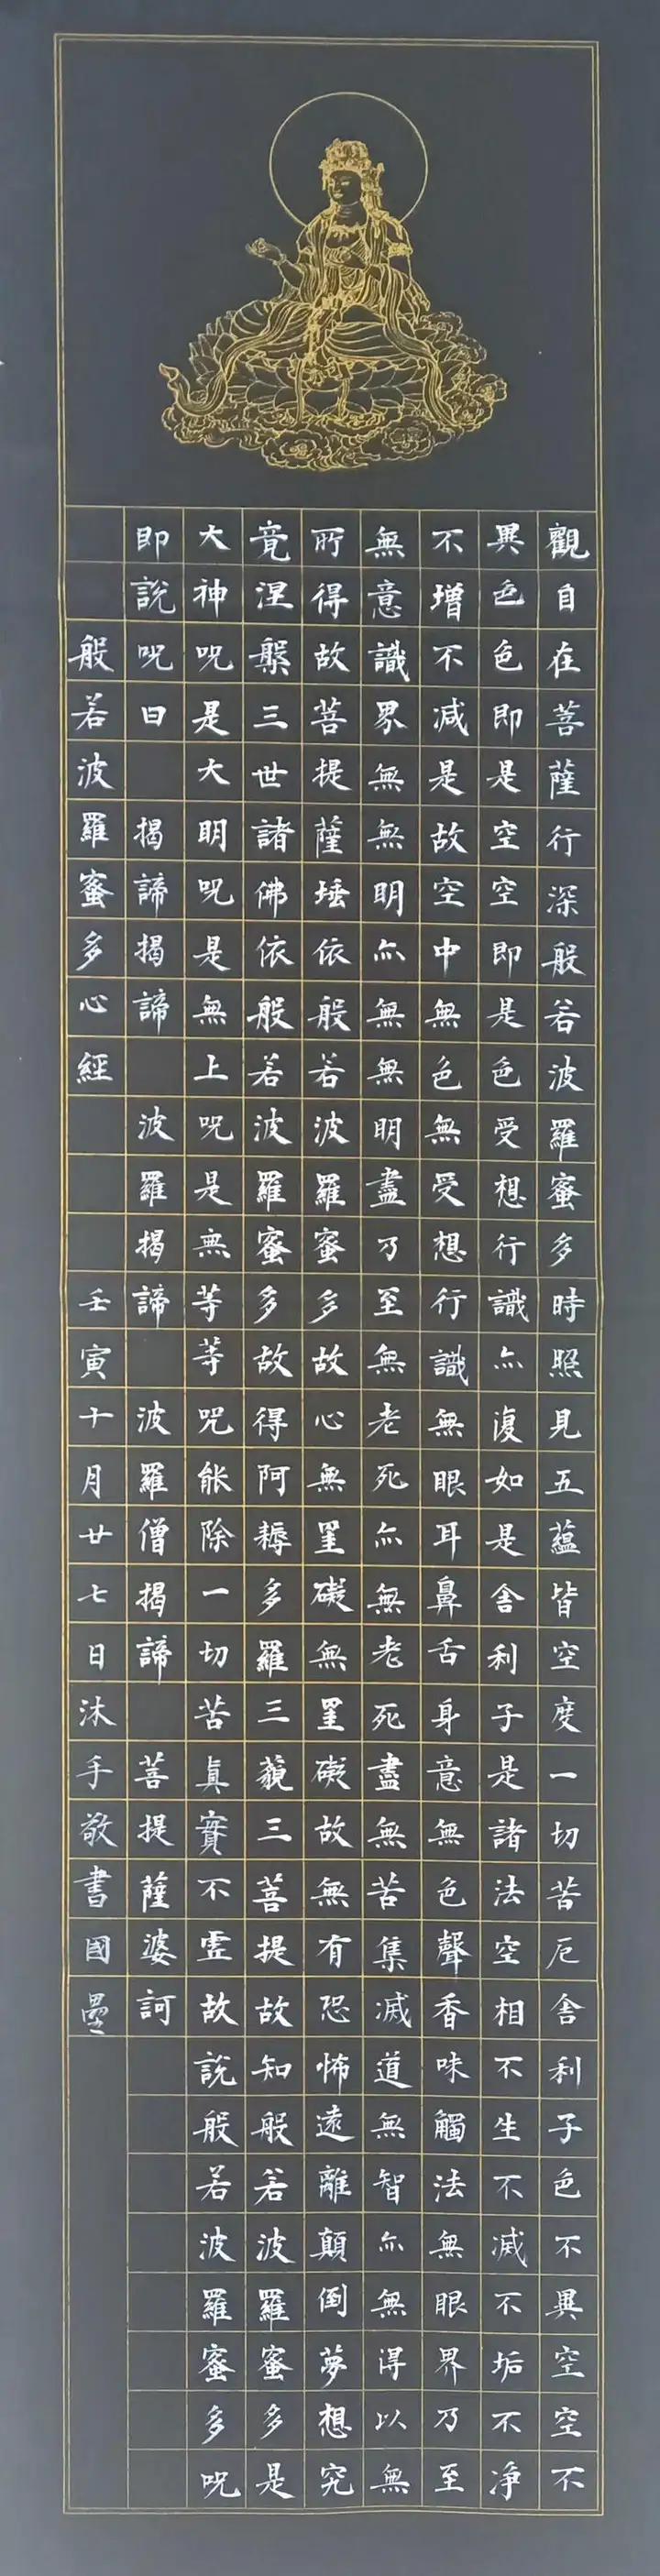 觀自在菩薩行深般若波羅蜜多時照見五蘊皆空度一切苦厄舍利子色不異空空不
異色色即是空空即是色受想行識亦復如是舍利子是諸法空相不生不滅不垢不淨
不增不減是故空中無色無受想行識無眼耳鼻舌身意無色聲香味觸法無眼界乃至
無意識界無無明亦無無明盡乃至無老死亦無老死盡無苦集滅道無智亦無得以無
所得故菩提薩埵依般若波羅蜜多故心無罣礙無罣礙故無有恐怖遠離顛倒夢想究
竟涅槃三世諸佛依般若波羅蜜多故得阿耨多羅三藐三菩提故知般若波羅蜜多是
大神咒是大明咒是無上咒是無等等咒能除一切苦真實不虛故說般若波羅蜜多咒
即說咒曰 揭諦揭諦 波羅揭諦 波羅僧揭諦 菩提薩婆訶
般若波羅蜜多心經 壬寅十月廿七日沐手敬書國